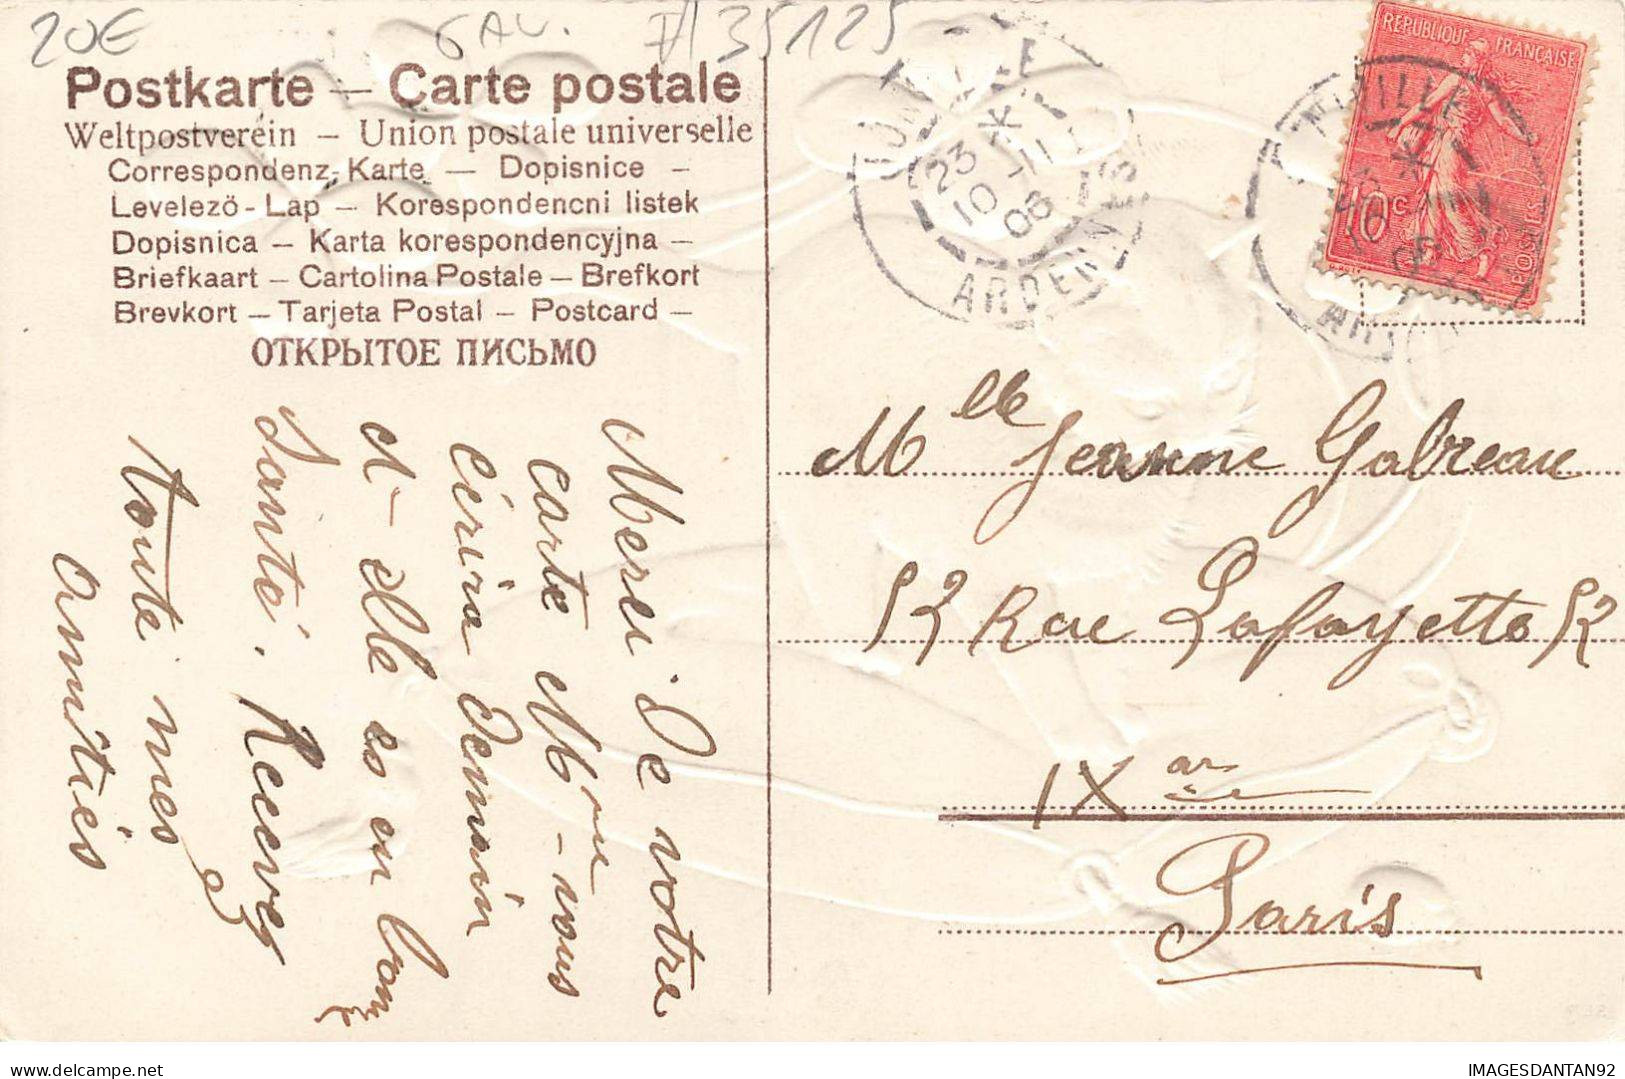 20€ 6 AV. 35125
Postkarte — Carte postale
Weltpostverein — Union postale universelle
Correspondenz-Karte — Dopisnice —
Levelezö-Lap — Korespondencni listek
Dopisnica — Karta korespondencyjna —
Briefkaart — Cartolina Postale — Brefkort
Brevkort — Tarjeta Postal — Postcard —
ОТКРЫТОЕ ПИСЬМО
Merci De votre
carte Mme - vous
écrira Demain
et - elle es en bonne
Santé. Recevez
toute mes
amitiés
23
10 - 11
06
ARDENNES
REPUBLIQUE FRANÇAISE
10 c POSTES
Mlle Jeanne Gabreau
52 Rue Lafayette 52
IX ar
Paris
IMAGESDANTAN92